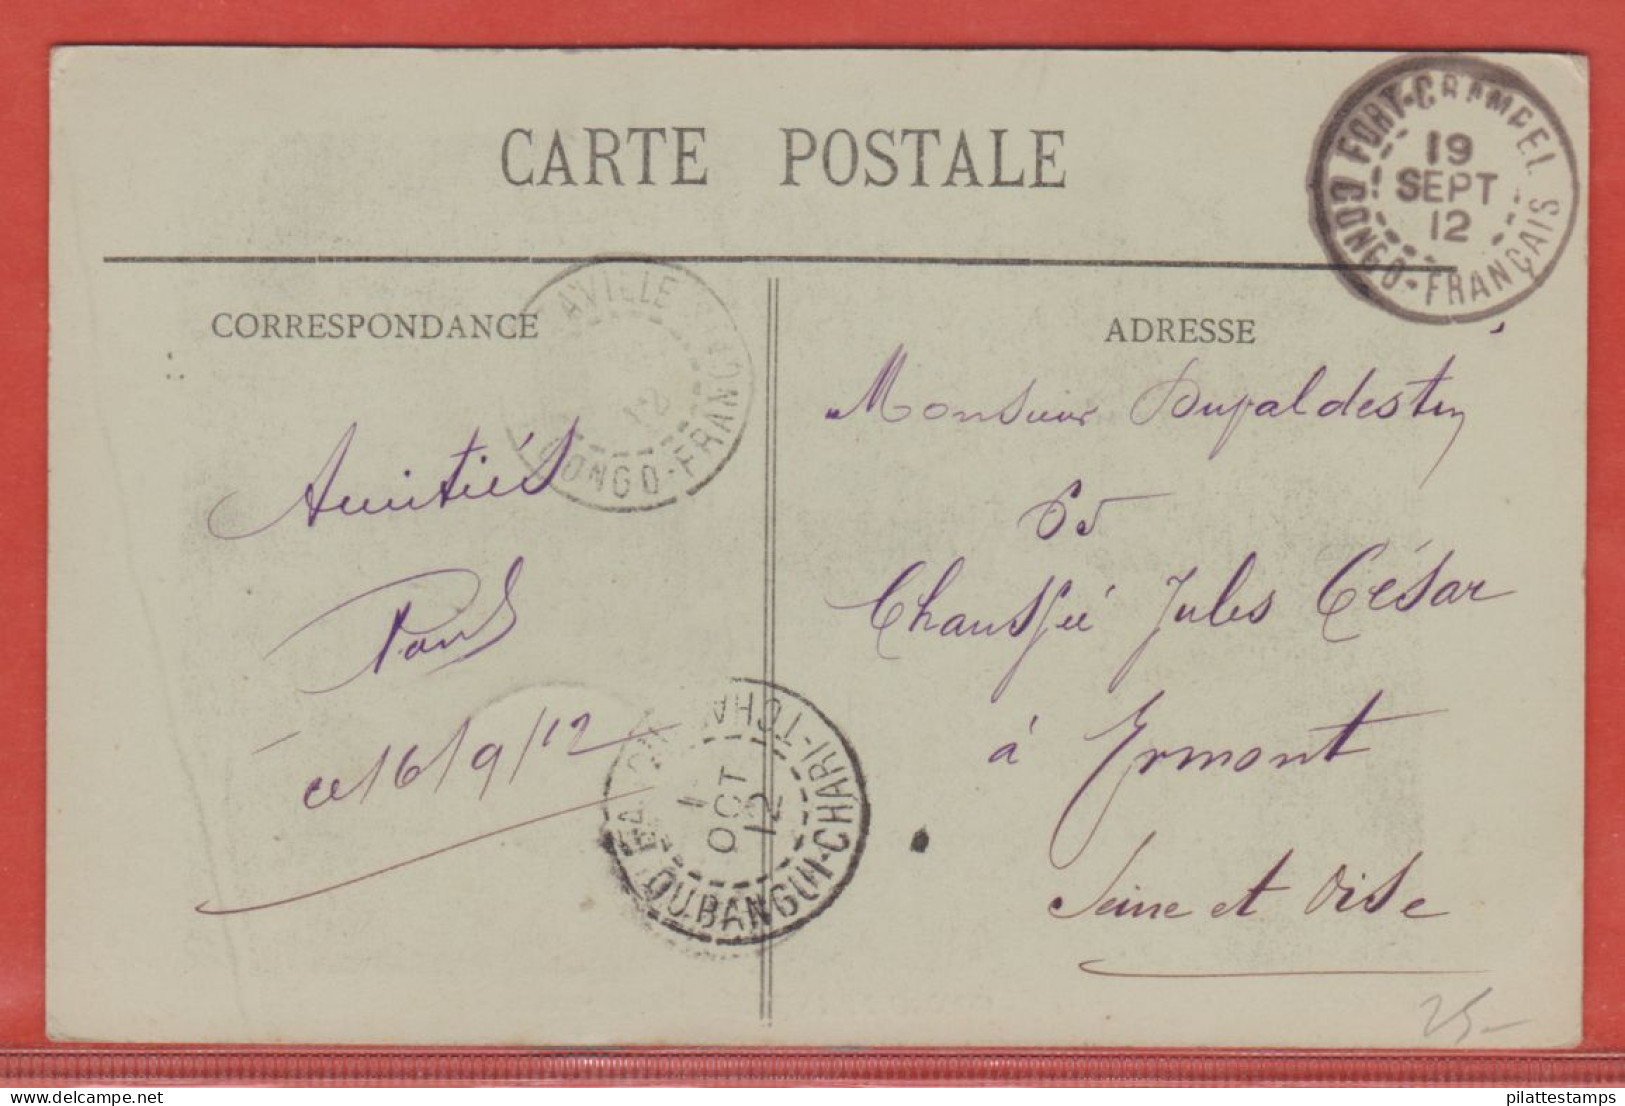 CARTE POSTALE
FORT-CRAMPEL
19
SEPT
12
CONGO-FRANÇAIS
CORRESPONDANCE
AVILLE
CONGO-FRANC
ADRESSE
Monsieur
Amitiés
65
Chaussée Jules César
Paul
à Ermont
ce 16/9/12
OUBANGUI-CHARI-TCHA
1
OCT
12
Seine et Oise
25-
pilattestamps